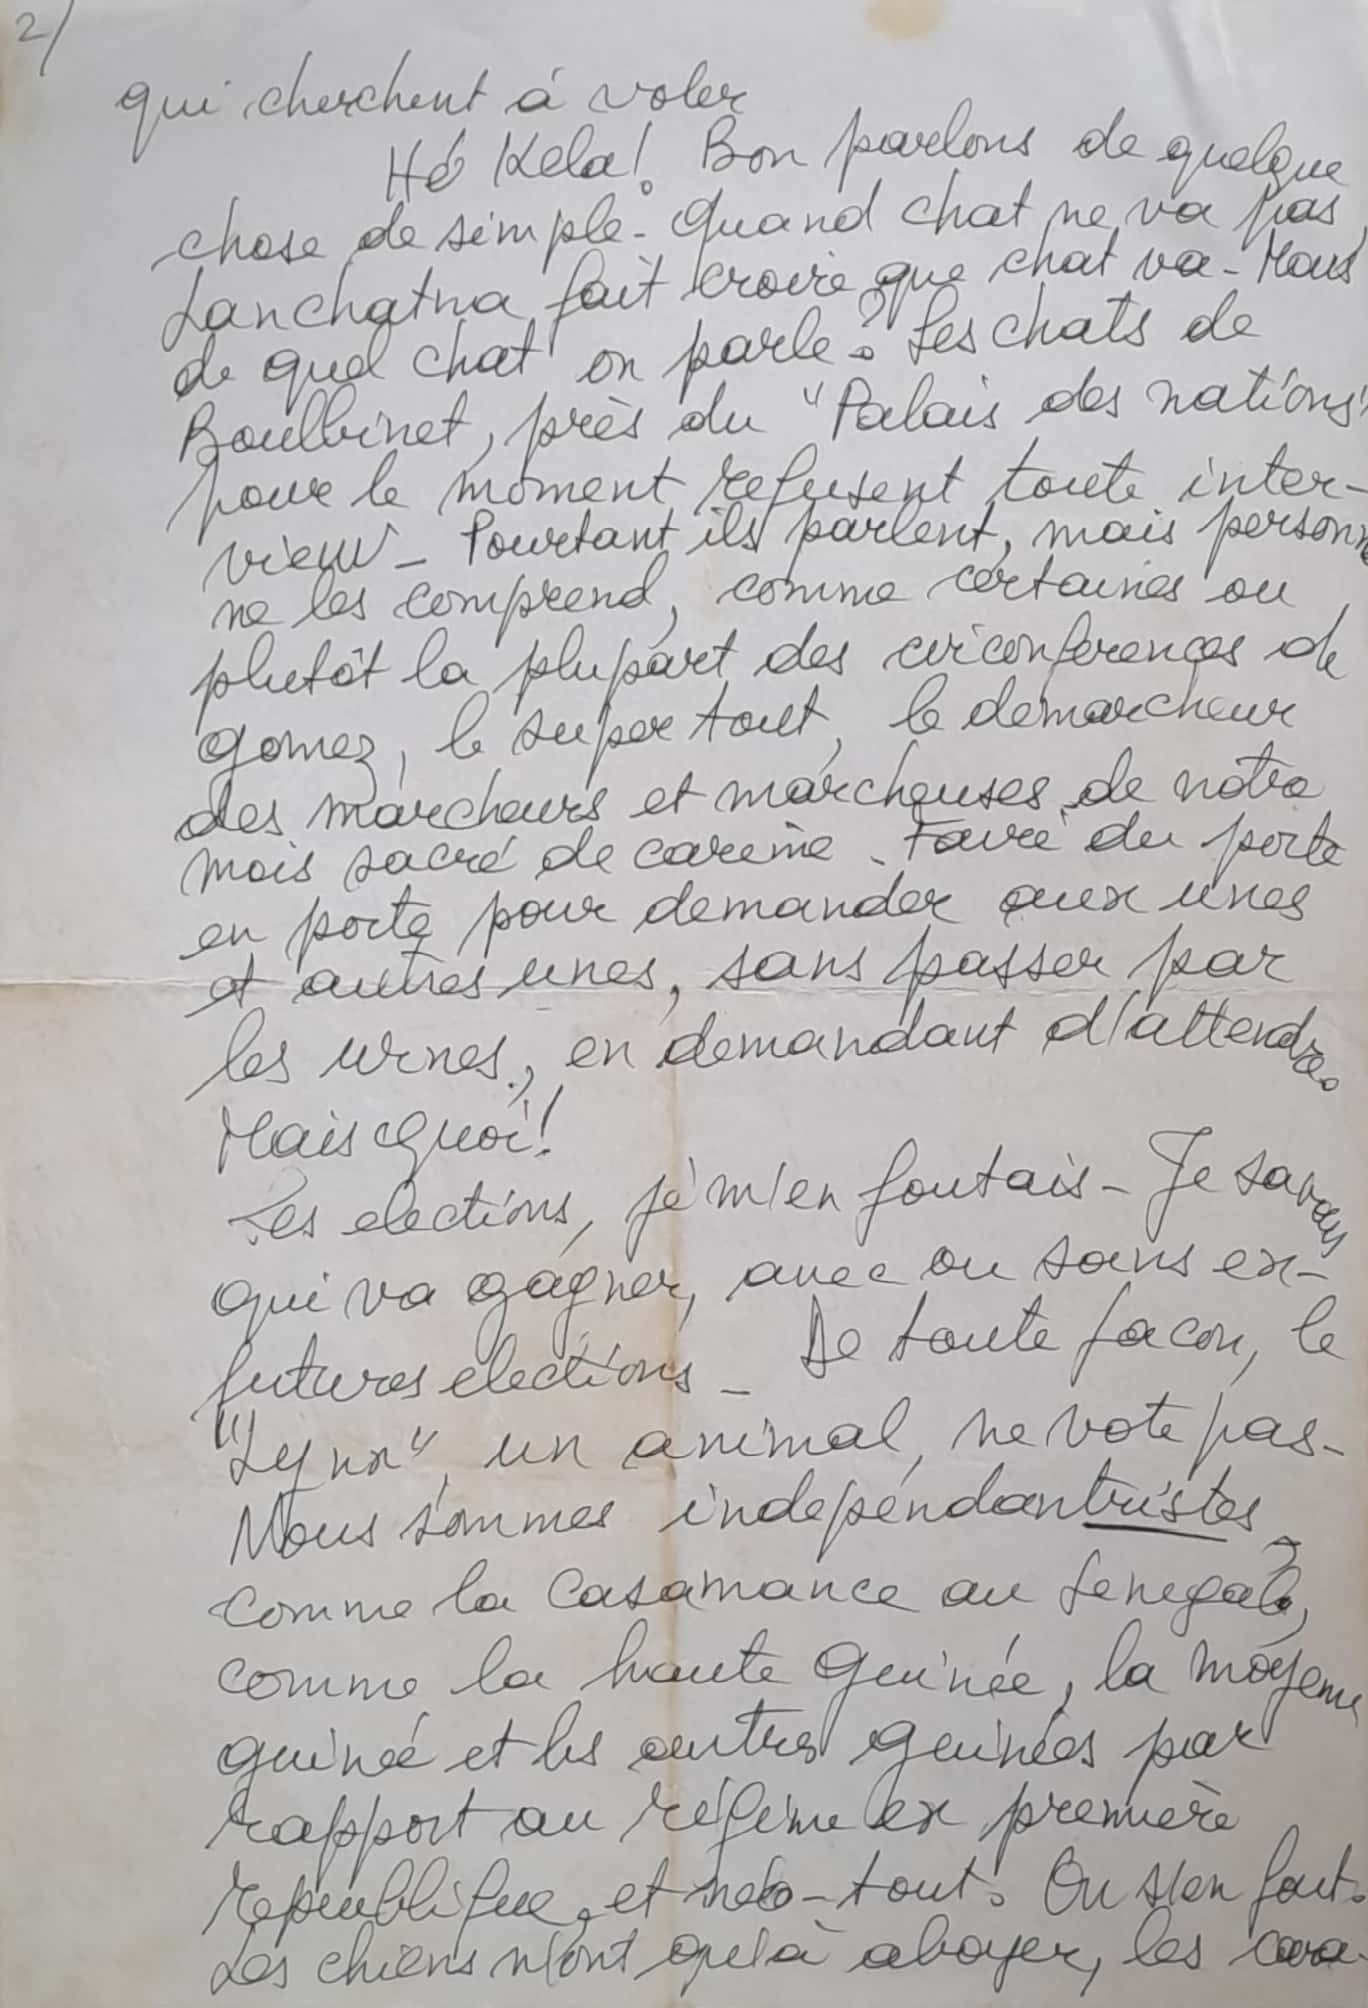 2/
qui cherchent à voler
Hé Kela! Bon parlons de quelque
chose de simple - Quand chat ne va pas,
Lanchatna fait croire que chat va - Mais
de quel chat on parle? Les chats de
Boulbinet, près du "Palais des nations"
pour le moment refusent toute inter-
view - Pourtant ils parlent, mais personne
ne les comprend, comme certaines ou
plutôt la plupart des circonferences de
gomez, le super tout, le demarcheur
des marcheurs et marcheuses de notre
mois sacré de carême. Faire du porte
en porte pour demander aux unes
et autres unes, sans passer par
les urnes, en demandant d'attendre.
Mais quoi!
Les elections, je m'en foutais - Je savais
qui va gagner, avec ou sans ex-
futures elections - De toute facon, le
"Lynx", un animal, ne vote pas -
Nous sommes indépendantristes,
comme la casamance au Senegal,
comme la haute guinée, la moyenne
guinée et les autres guinées par
rapport au régime ex première
republique, et néo-tout. On s'en fout.
Les chiens n'ont qu'à aboyer, les cara-